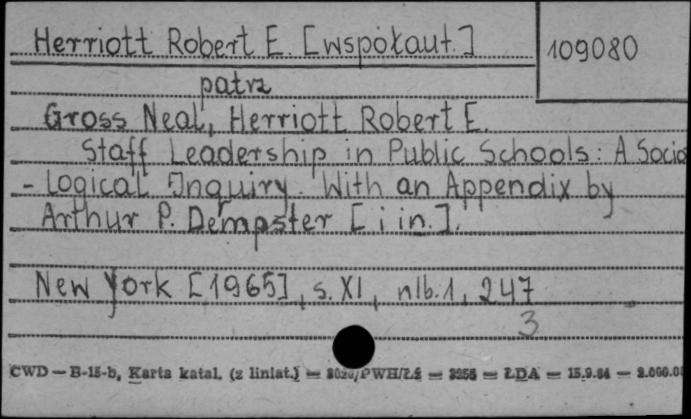 Herriott Robert E. [współaut.]
109080
patrz
Gross Neal, Herriott Robert E.
Staff Leadership in Public Schools: A Socio
- Logical Inquiry. With an Appendix by
Arthur P. Dempster [i in.].
New York [1965], s. XI, nlb. 1, 247
3
CWD — B-15-b, Karta katal. (z liniat.) — PWH/Łź — — ŁDA — 15.9.64 — 2.000.00